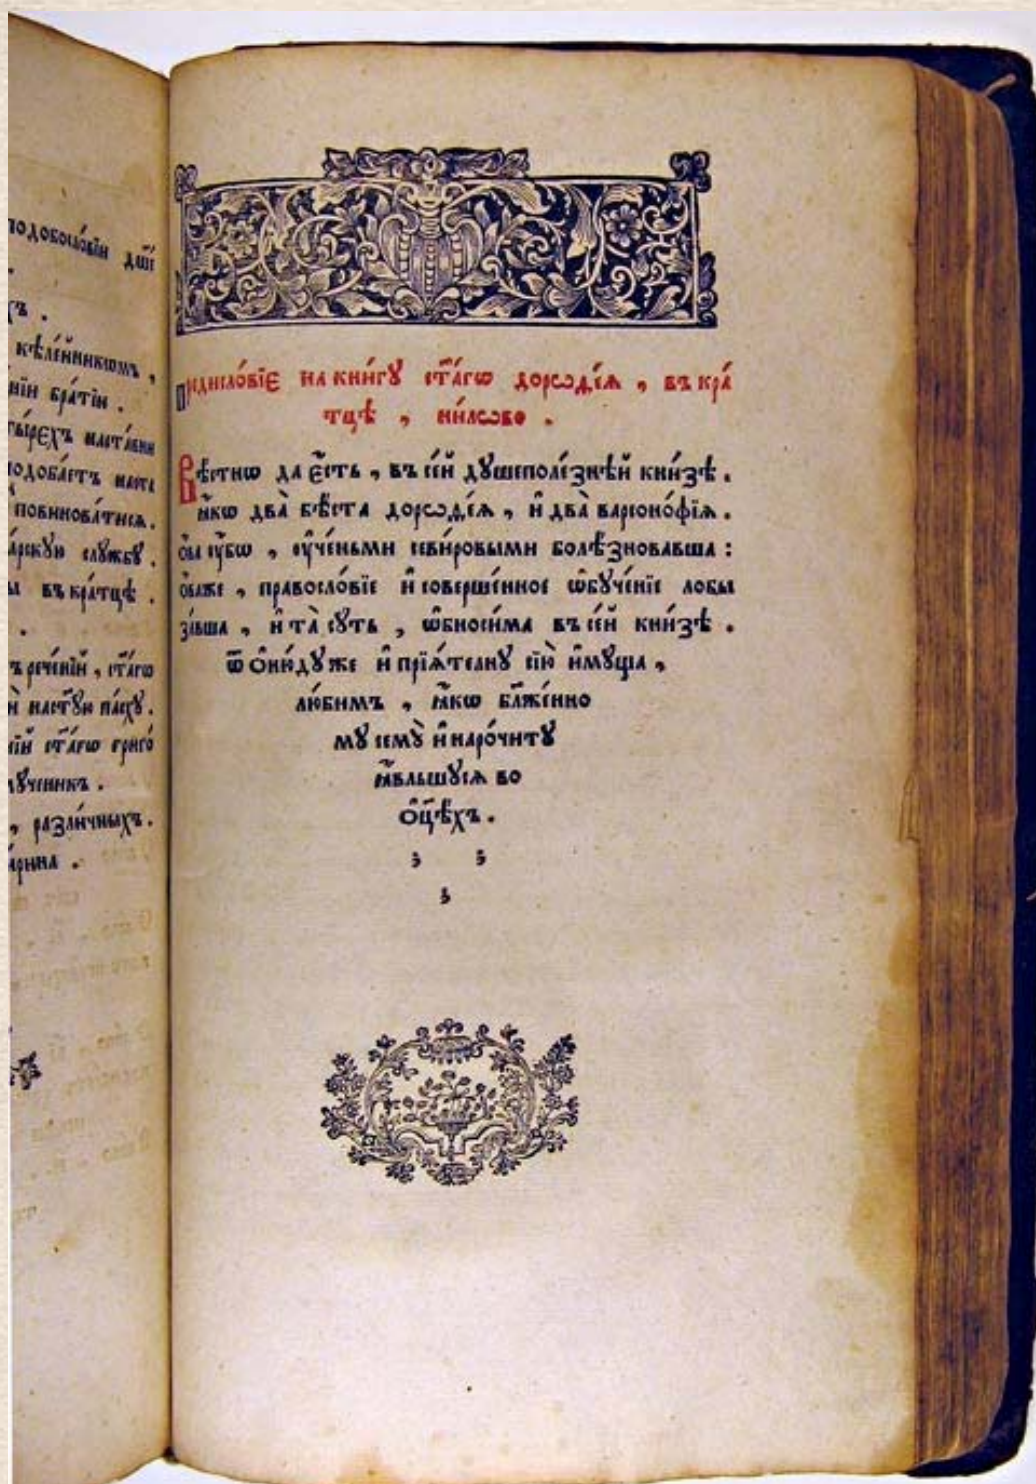 подобословїи дш҃е
хъ .
кѣле́йникѡмъ ,
нїи бра́тїи .
тыре́хъ наста́вни
подоба́етъ наста
повинова́тися .
а́рскую слꙋ́жбꙋ .
ы въкра́тцѣ .
ъ рече́нїи , ст҃а́гѡ
и настꙋ́ю па́схꙋ .
нїи ст҃а́гѡ григо́
мꙋ́ченик .
, разли́чныхъ .
а́рина .
предисло́вїе на кни́гꙋ ст҃а́гѡ дорѡѳе́ѧ , въ кра́
тцѣ , ни́лѡво .
Вѣ́стнѡ да є҆́сть , въ се́й дꙋшеполе́знѣй кни́зѣ .
ꙗ҆́кѡ два̀ бѣ́ста дорѡѳе́ѧ , и҆ два̀ варсоно́фїѧ .
ѻ҆́ва ᲂу҆́бѡ , ᲂу҆че́ньми севи́ровыми болѣ́зновавша :
ѻ҆́важе , правосло́вїе и҆ соверше́нное ѡ҆бꙋче́нїе лобы
за́вша , и҆ та̀ сꙋть , ѡ҆бноси́ма въ се́й кни́зѣ .
ѿ ѻ҆ню́дꙋже и҆ прїѧ́телнꙋ сїю̀ и҆мꙋ́ща ,
лю́бимъ , ꙗ҆́кѡ бл҃же́нно
мꙋ семꙋ̀ и҆ наро́читꙋ
ꙗ҆́вльшꙋсѧ во
ѻ҆ц҃ѣ́хъ .